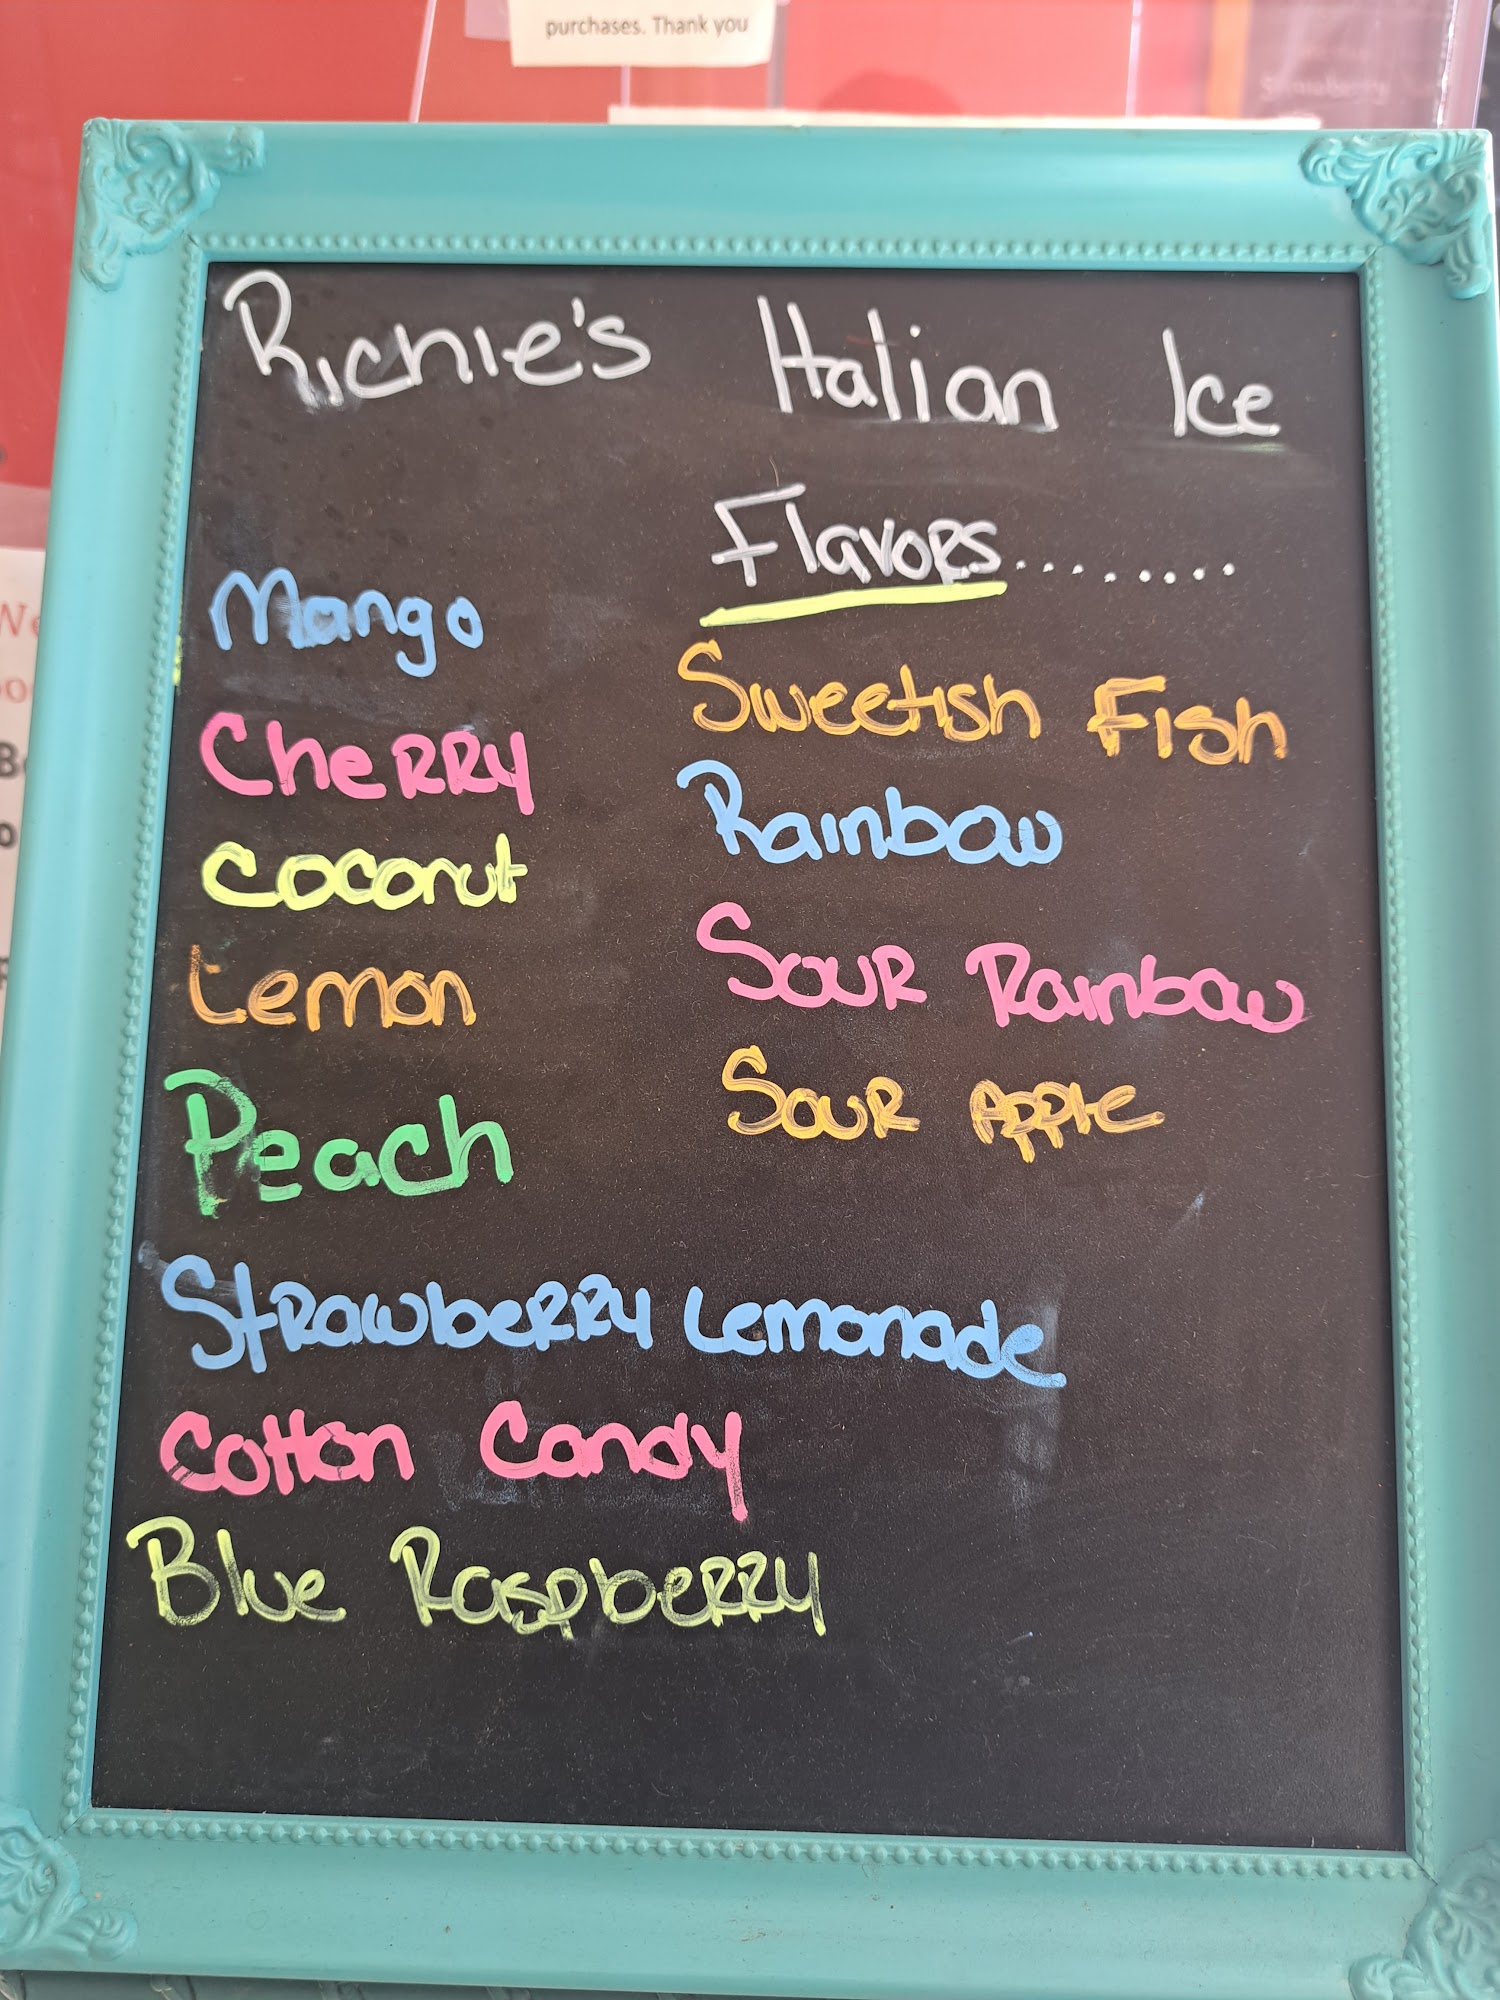 purchases. Thank you
Strawberry
Richie's Italian Ice
Flavors.........
Mango
Cherry
Coconut
Lemon
Peach
Strawberry Lemonade
Cotton Candy
Blue Raspberry
Sweetish Fish
Rainbow
Sour Rainbow
Sour Apple